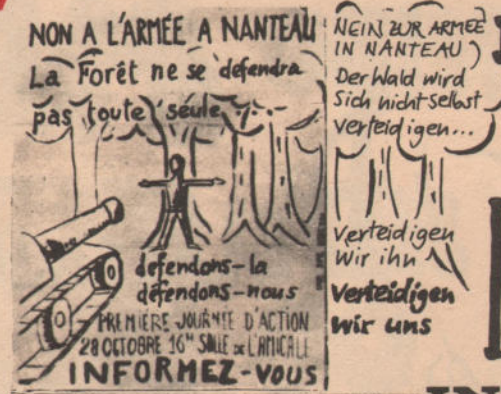 NON A L'ARMÉE A NANTEAU
La Forêt ne se défendra
pas toute seule...
défendons-la
défendons-nous
PREMIÈRE JOURNÉE D'ACTION
28 OCTOBRE 16H SALLE DE L'AMICALE
INFORMEZ-VOUS
NEIN ZUR ARMEE
IN NANTEAU
Der Wald wird
Sich nicht selbst
verteidigen...
verteidigen
Wir ihn
Verteidigen
wir uns